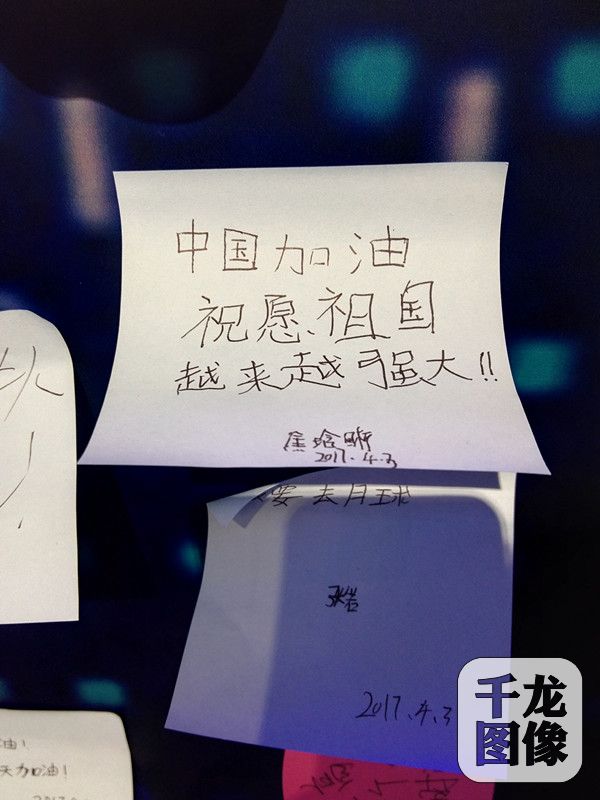 中国加油
祝愿祖国
越来越强大!!
2017.4.3
要去月球
张岩
2017.4.3
油!
天加油!
千龙
图像